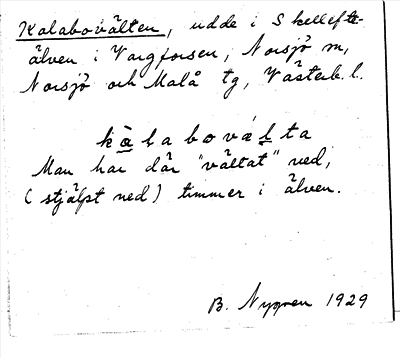 Kalabovälten, udde i Skellefte-
älven i Vargforsen, Norsjö m,
Norsjö och Malå tg, Västerb. l.
kàlabovälta
Man har där "vältat" ned,
(stjälpt ned) timmer i älven.
B. Nygren 1929